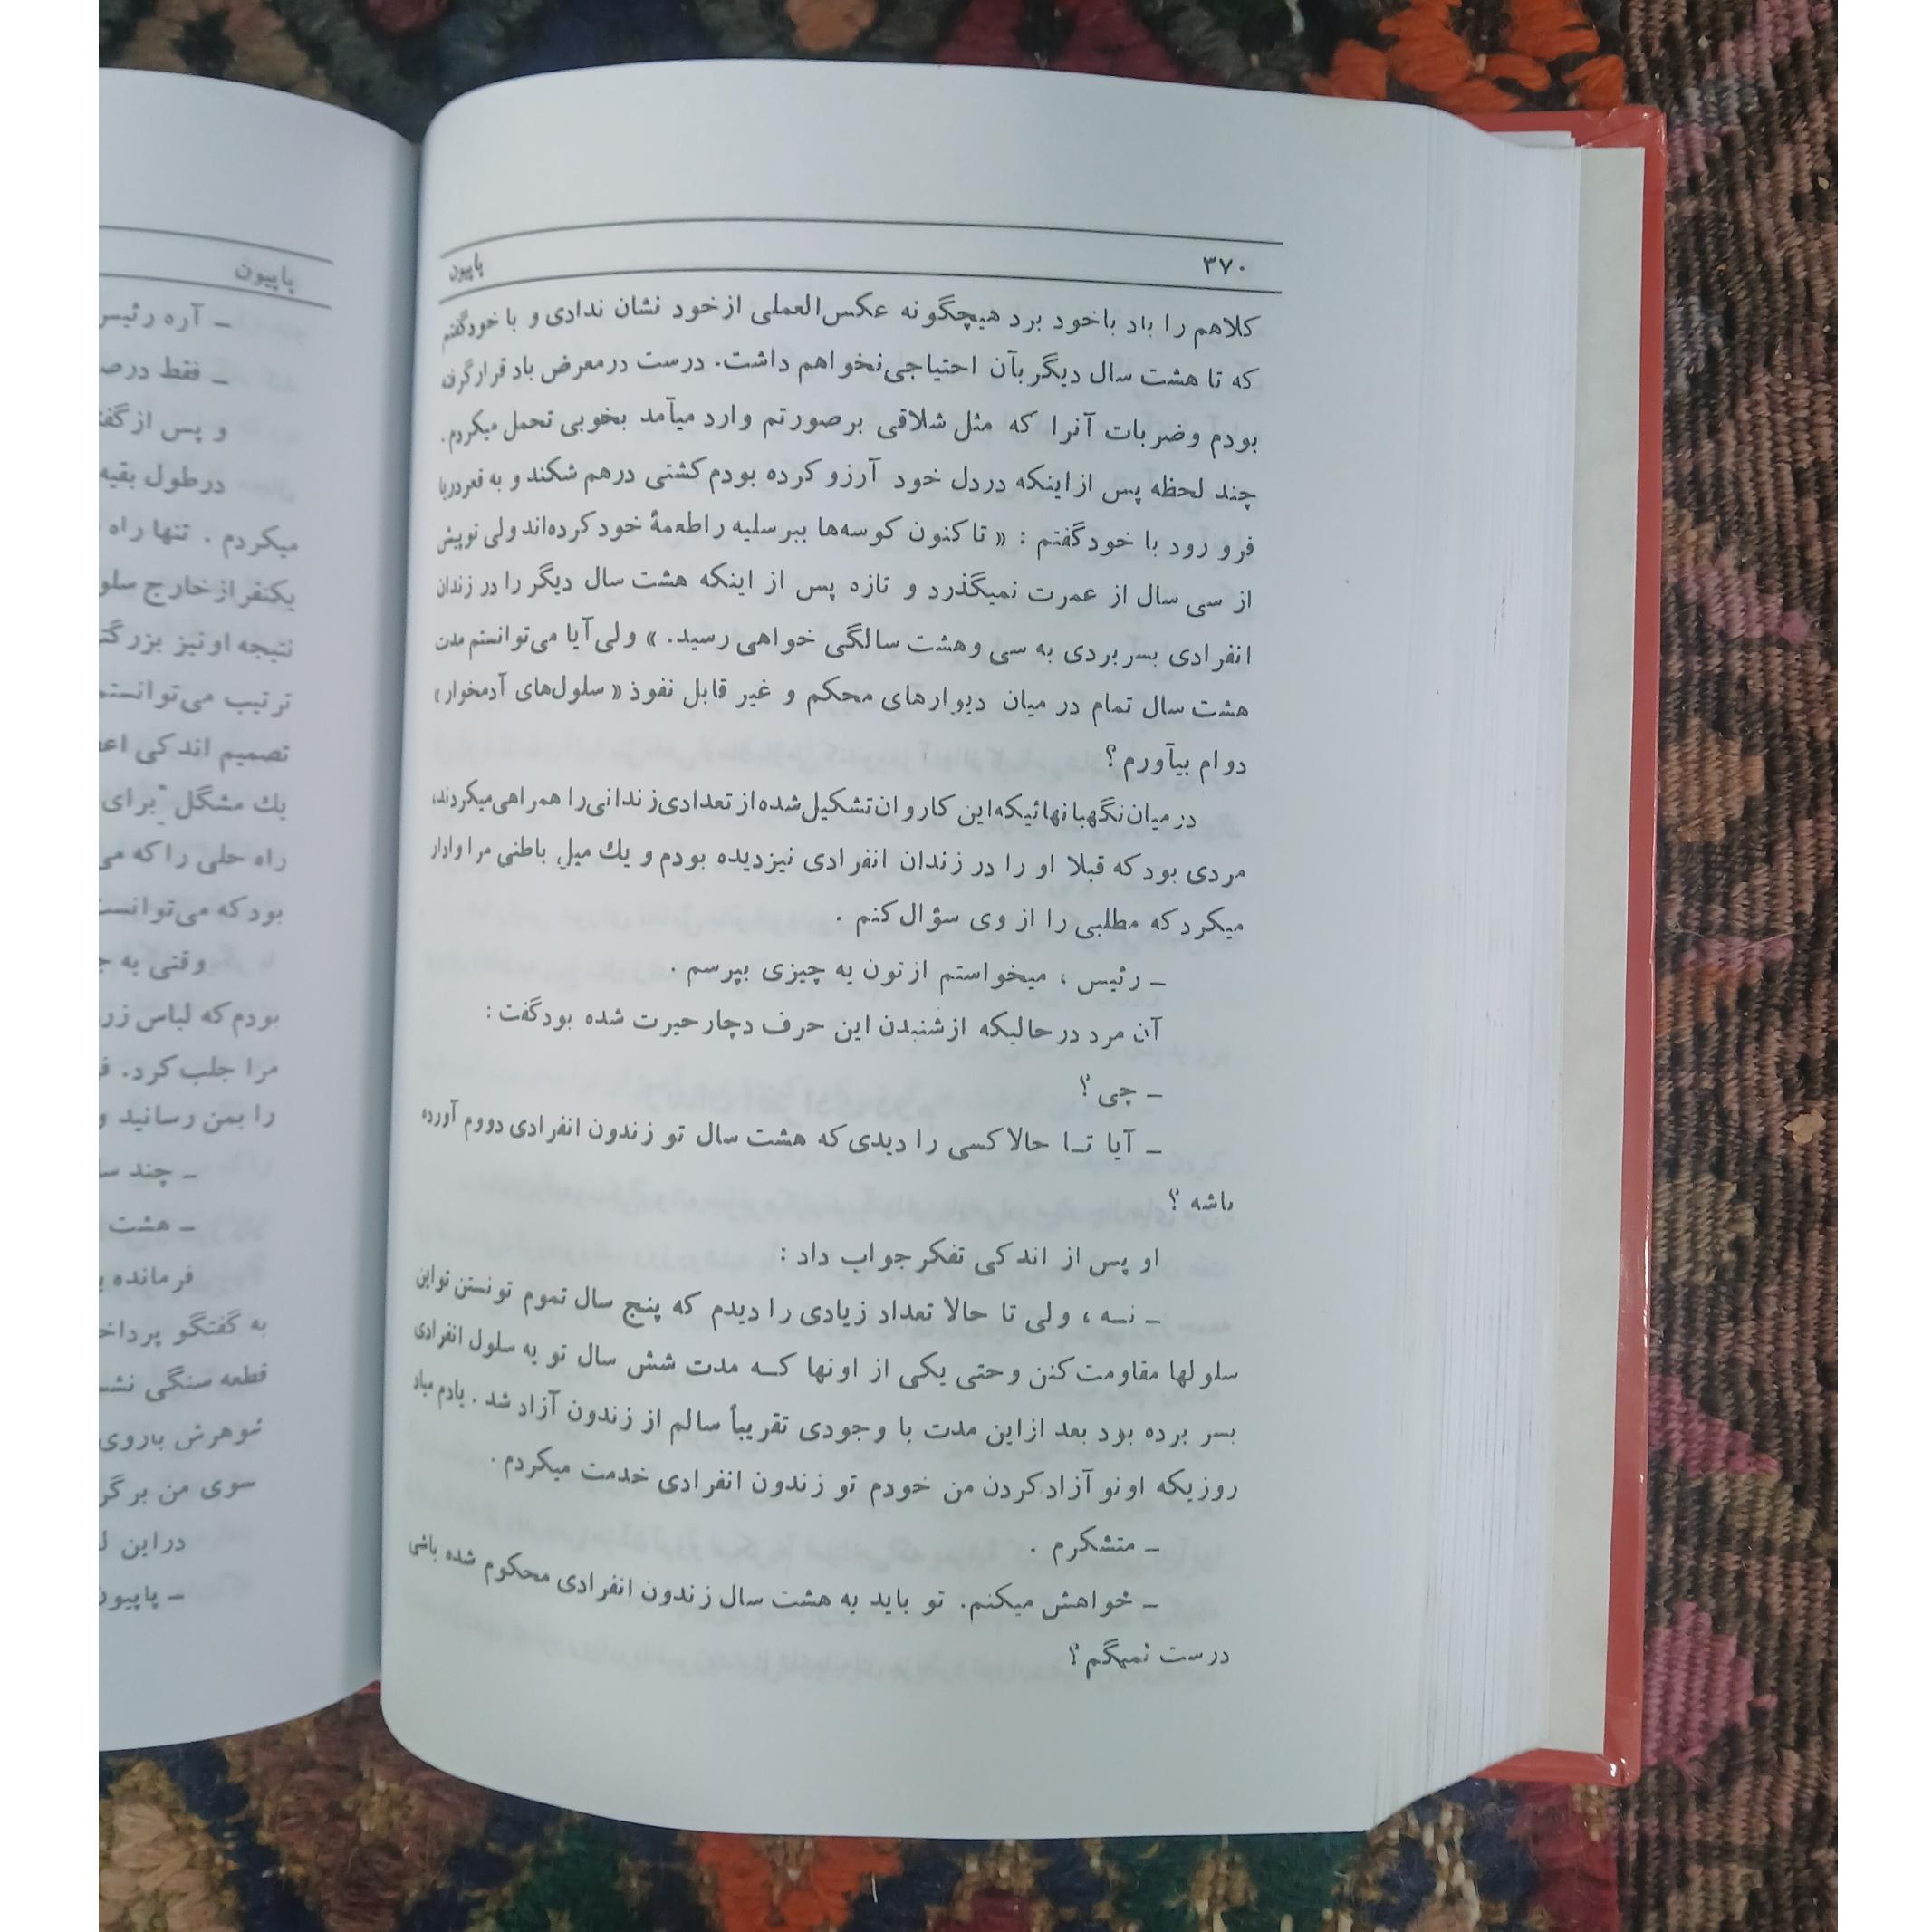 ۳۷۰ پاپیون
کلاهم را باد باخود برد هیچگونه عکس‌العملی ازخود نشان ندادی و با خودگفتم
که تا هشت سال دیگر بآن احتیاجی‌نخواهم داشت. درست درمعرض باد قرارگرفته
بودم وضربات آنرا که مثل شلاقی برصورتم وارد میآمد بخوبی تحمل میکردم.
چند لحظه پس ازاینکه دردل خود آرزو کرده بودم کشتی درهم شکند و به قعردریا
فرو رود با خودگفتم : « تاکنون کوسه‌ها ببرسلیه راطعمهٔ خودکرده‌اند ولی توبیش
از سی سال از عمرت نمیگذرد و تازه پس از اینکه هشت سال دیگر را در زندان
انفرادی بسربردی به سی وهشت سالگی خواهی رسید. » ولی‌آیا می‌توانستم مدت
هشت سال تمام در میان دیوارهای محکم و غیر قابل نفوذ « سلول‌های آدمخوار»
دوام بیآورم ؟
درمیان‌نگهبانهائیکه‌این کاروان‌تشکیل‌شده‌از تعدادی‌زندانی‌را همراهی‌میکردند،
مردی بودکه قبلا او را در زندان انفرادی نیزدیده بودم و یك میل باطنی مرا وادار
میکردکه مطلبی را از وی سؤال کنم .
– رئیس ، میخواستم ازتون یه چیزی بپرسم .
آن مرد درحالیکه ازشنیدن این حرف دچارحیرت شده بودگفت :
– چی ؟
– آیا تـا حالاکسی را دیدی که هشت سال تو زندون انفرادی دووم آورده
باشه ؟
او پس از اندکی تفکر جواب داد :
– نـه ، ولی تا حالا تعداد زیادی را دیدم که پنج سال تموم تونستن تواین
سلولها مقاومت‌کنن وحتی یکی از اونها کـه مدت شش سال تو یه سلول انفرادی
بسر برده بود بعد ازاین مدت با وجودی تقریباً سالم از زندون آزاد شد . یادم میاد
روزیکه اونو آزادکردن من خودم تو زندون انفرادی خدمت میکردم .
– متشکرم .
– خواهش میکنم. تو باید به هشت سال زندون انفرادی محکوم شده باشی
درست نمیگم ؟
پاپیون
– آره
– فقط
و پس از
درطول بقیه
میکردم . تنها راه
یکنفر ازخارج
نتیجه اونیز
ترتیب می‌توانستم
تصمیم اندکی
یك مشگل برای
راه حلی راکه
بودکه
وقتی به
بودم‌که لباس
مرا جلب کرد.
را بمن رسانید و
– چند
– هشت
فرمانده
به گفتگو
قطعه سنگی
شوهرش باروی
سوی من
دراین
– پاپیون